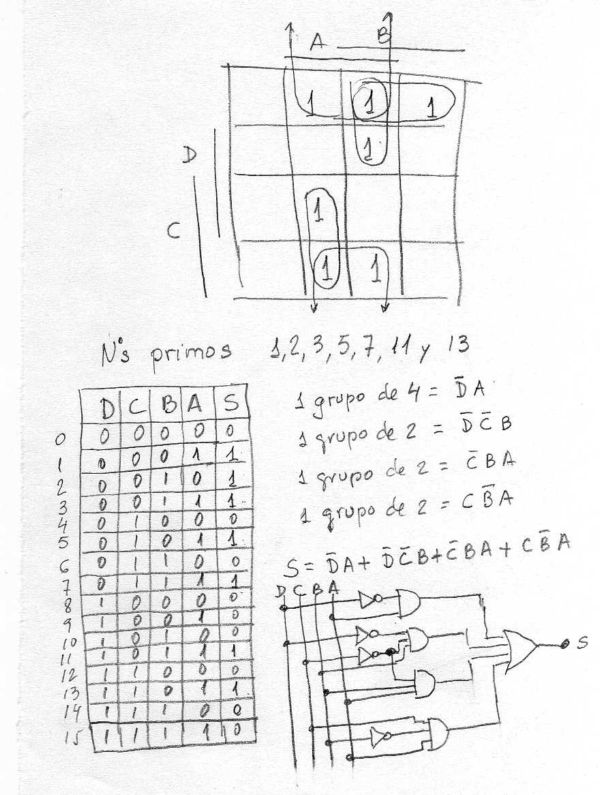 A B
1 1 1
D 1
C 1
1 1
Nºs primos 1,2,3,5,7,11 y 13
1 grupo de 4 = D̄A
1 grupo de 2 = D̄C̄B
1 grupo de 2 = C̄BA
1 grupo de 2 = CB̄A
S= D̄A+ D̄C̄B+C̄BA+CB̄A
D C B A S
0 0 0 0 0 0
1 0 0 0 1 1
2 0 0 1 0 1
3 0 0 1 1 1
4 0 1 0 0 0
5 0 1 0 1 1
6 0 1 1 0 0
7 0 1 1 1 1
8 1 0 0 0 0
9 1 0 0 1 0
10 1 0 1 0 0
11 1 0 1 1 1
12 1 1 0 0 0
13 1 1 0 1 1
14 1 1 1 0 0
15 1 1 1 1 0
D C B A
S